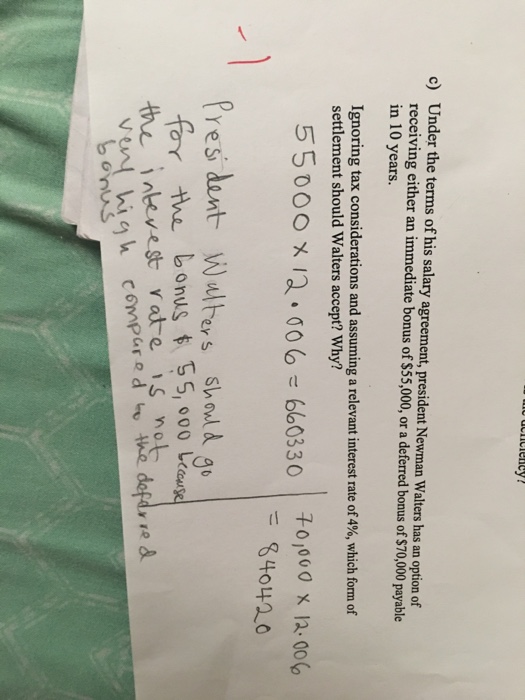 c) Under the terms of his salary agreement, president Newman Walters has an option of
receiving either an immediate bonus of $55,000, or a deferred bonus of $70,000 payable
in 10 years.
Ignoring tax considerations and assuming a relevant interest rate of 4%, which form of
settlement should Walters accept? Why?
55000 x 12.006 = 660330
70,000 x 12.006
= 840420
-1
President Walters should go
for the bonus $ 55,000 because
the interest rate is not
very high compared to the deferred
bonus